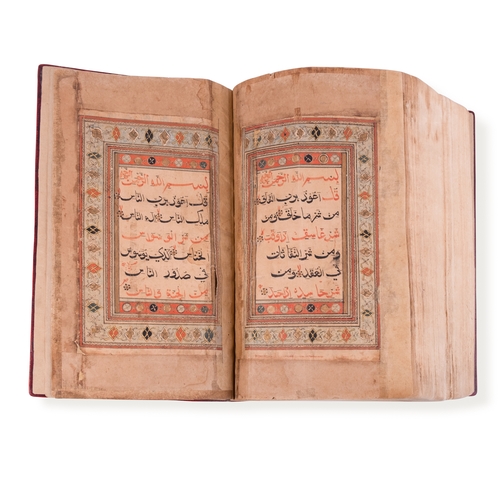 بسم الله الرحمن الرحيم
قل اعوذ برب الفلق
من شر ما خلق ومن
شر غاسق اذا وقب
ومن شر النفاثات
في العقد ومن
شر حاسد اذا حسد
بسم الله الرحمن الرحيم
قل اعوذ برب الناس
ملك الناس اله الناس
من شر الوسواس
الخناس الذي يوسوس
في صدور الناس
من الجنة والناس